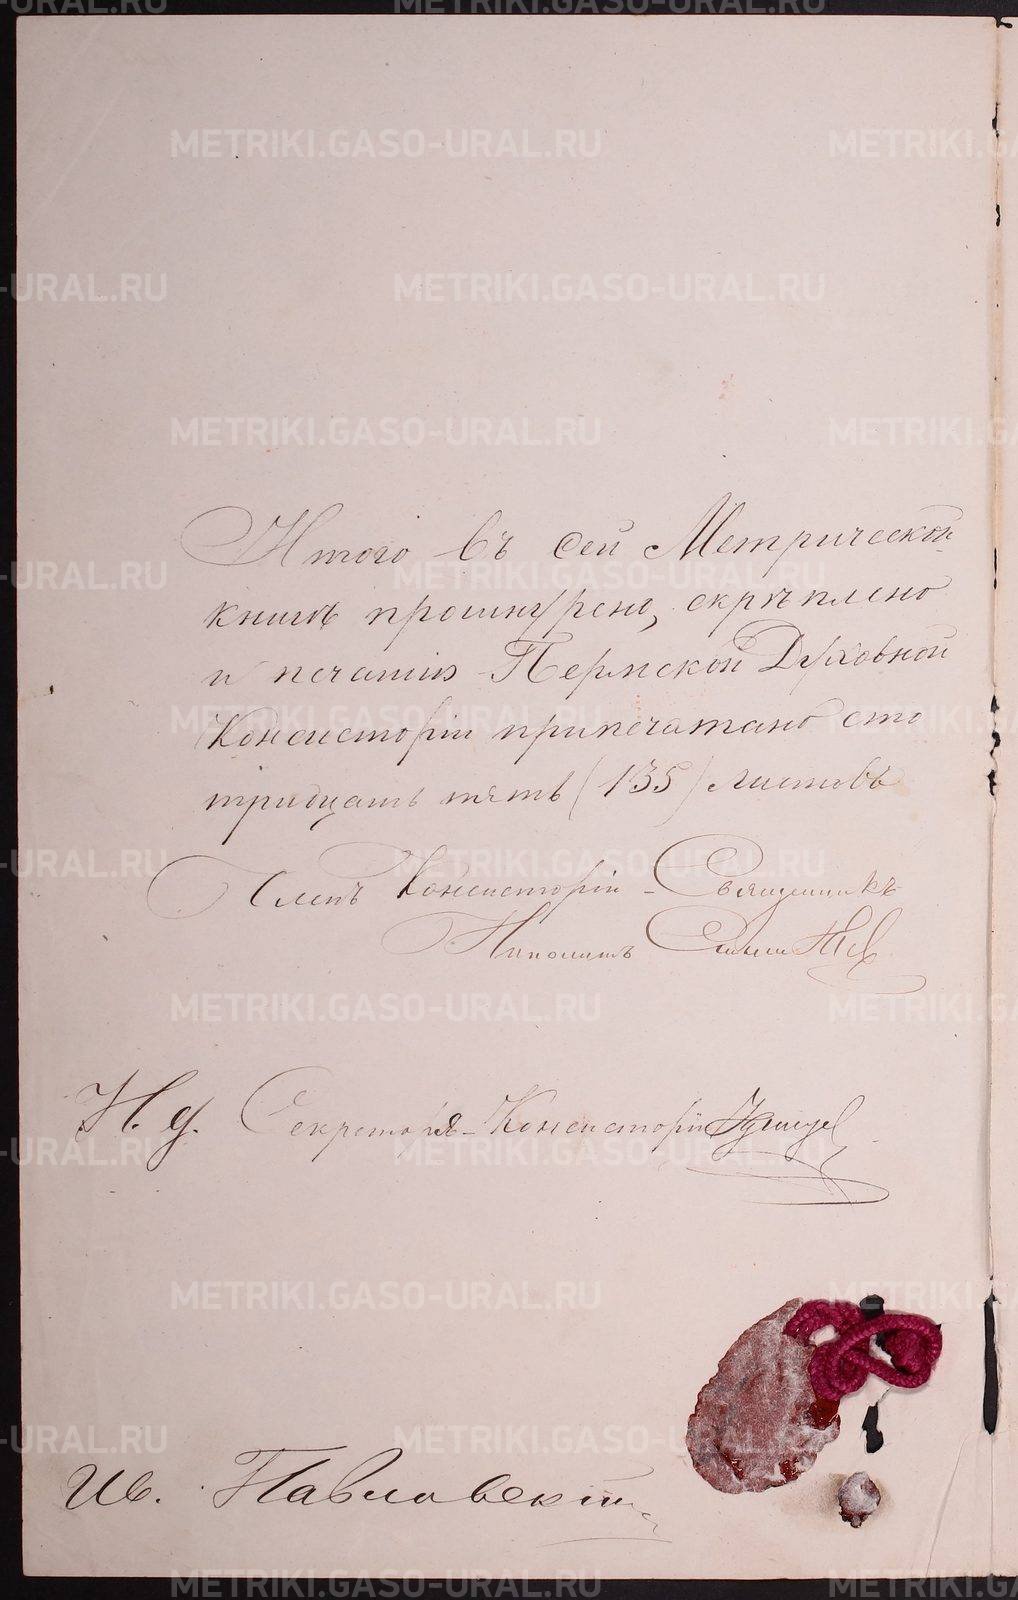 Итого въ сей Метрической
книгѣ прошнурено, скрѣплено
и печатію Пермской Духовной
Консисторіи припечатано сто
тридцать пять (135) листовъ
Членъ Консисторіи Священникъ
Ипполитъ
И. д. Секретаря Консисторіи
Ив. Павловскій
METRIKI.GASO-URAL.RU